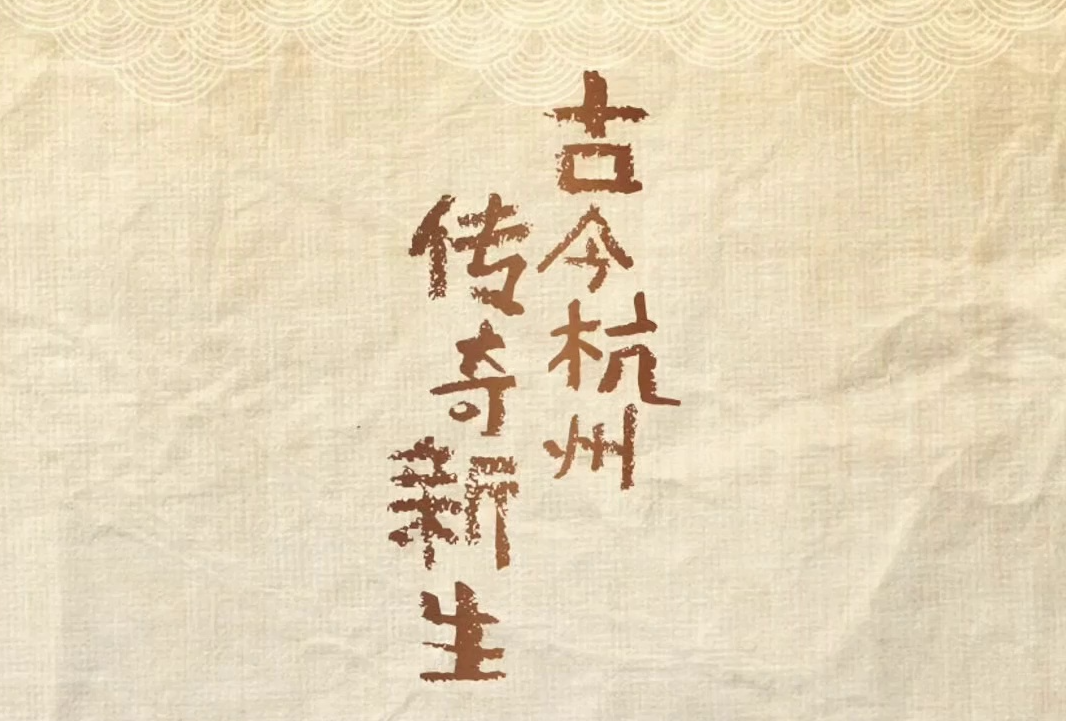 古今杭州
传奇新生